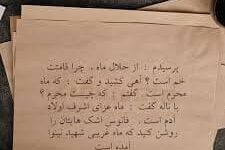 پرسیدم : از حلال ماه ، چرا قامتت
خم است ؟ آهی کشید و گفت : که ماه
محرم است. گفتم : که چیست محرم ؟
با ناله گفت : ماه عزای اشرف اولاد
آدم است . فانوس اشک هایتان را
روشن کنید که ماه غریبی شهید نینوا
آمده است